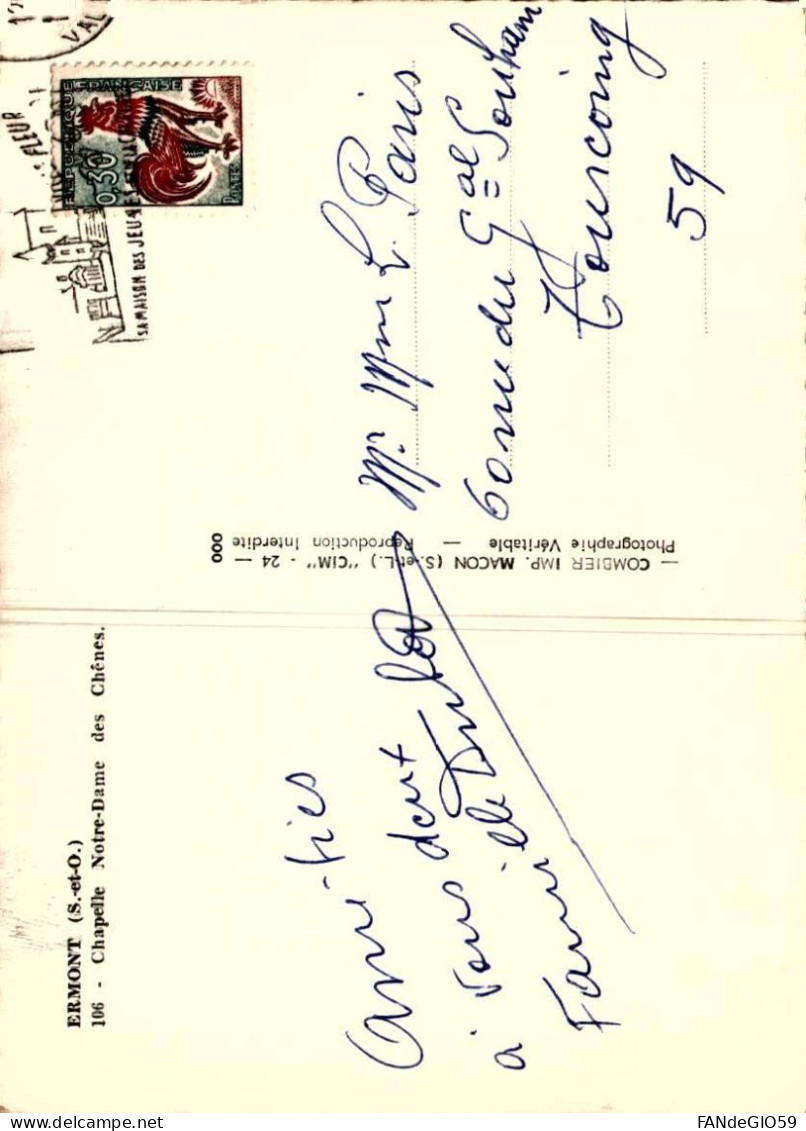 ERMONT (S.-et-O.)
106 - Chapelle Notre-Dame des Chênes.
Amitiés
à vous deux
Famille
— COMBIER IMP. MACON (S.-et-L.) "CIM" - 24 —
Photographie Véritable — Reproduction Interdite
000
FLEUR
SA MAISON DES JEUNES ET DE LA CULTURE
REPUBLIQUE FRANÇAISE
0,30
Mr. Mme L. Paris
60 rue du Gal Souham
Tourcoing
59
FANdeGIO59